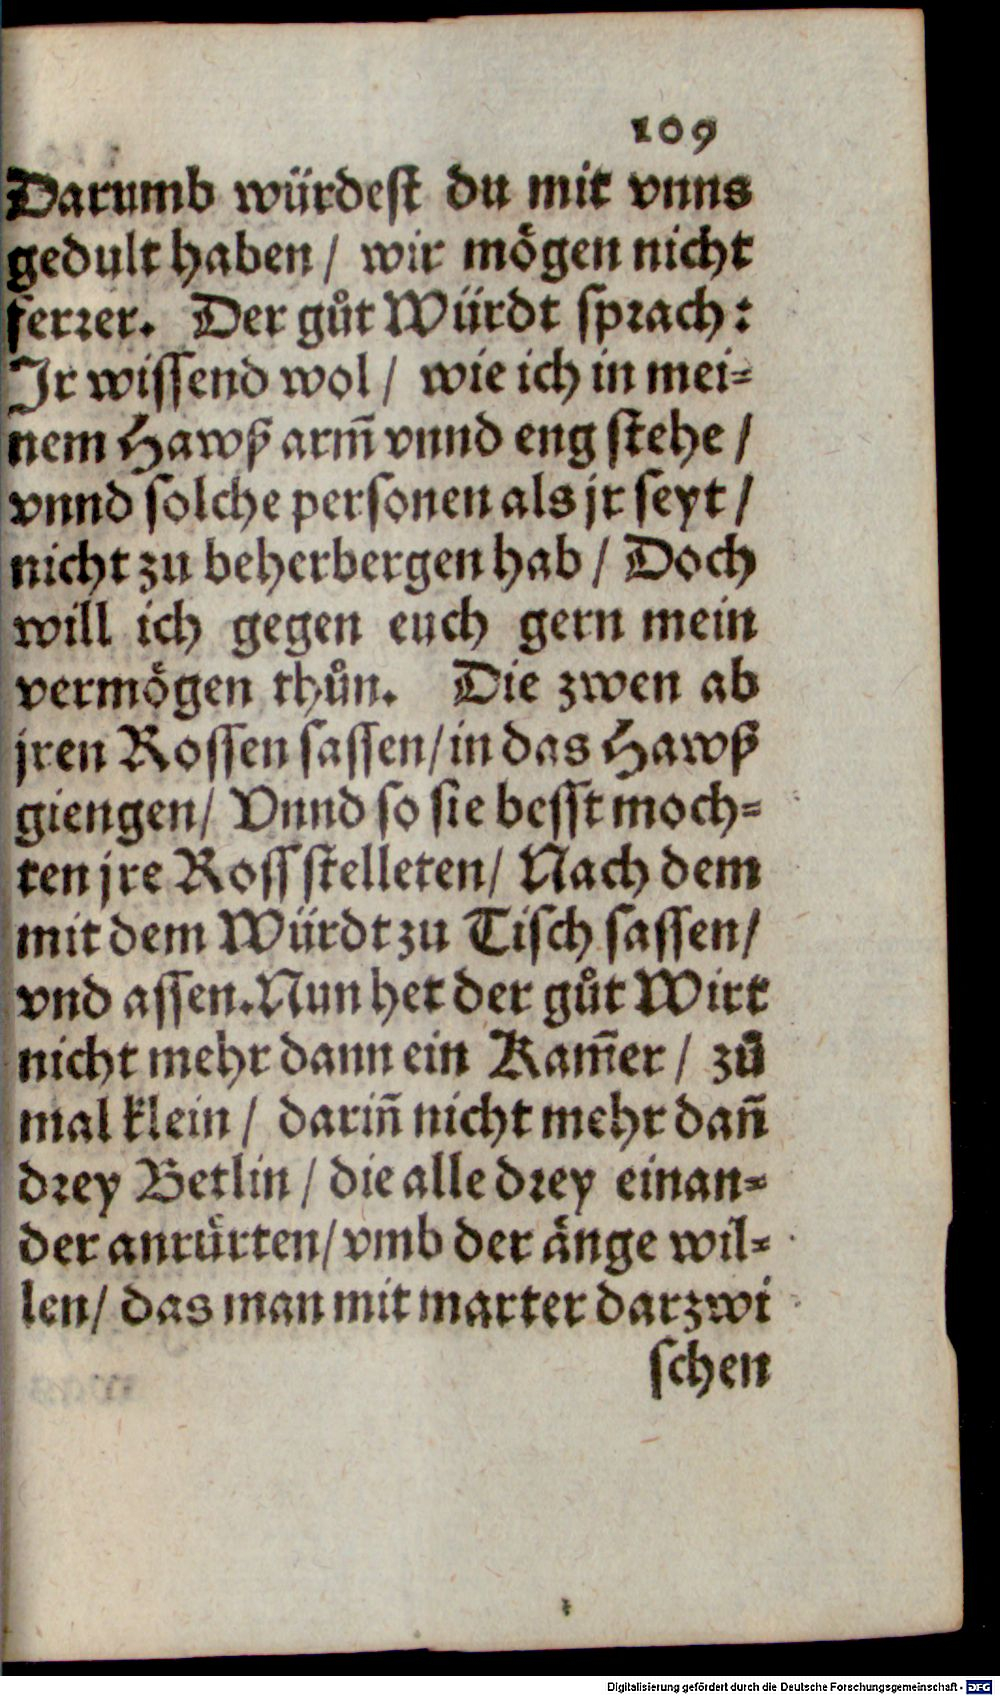 109
Darumb würdest du mit vnns
gedult haben / wir mögen nicht
ferrer. Der gůt Würdt sprach:
Jr wissend wol / wie ich in mei⸗
nem Hawß arm̃ vnnd eng stehe /
vnnd solche personen als jr seyt /
nicht zu beherbergen hab / Doch
will ich gegen euch gern mein
vermögen thůn. Die zwen ab
jren Rossen sassen / in das Hawß
giengen / Vnnd so sie besst moch⸗
ten jre Ross stelleten / Nach dem
mit dem Würdt zu Tisch sassen /
vnd assen. Nun het der gůt Wirt
nicht mehr dann ein Kam̃er / zů
mal klein / darin̄ nicht mehr dan̄
drey Betlin / die alle drey einan⸗
der anrürten / vmb der änge wil⸗
len / das man mit marter darzwi
schen
Digitalisierung gefördert durch die Deutsche Forschungsgemeinschaft - DFG